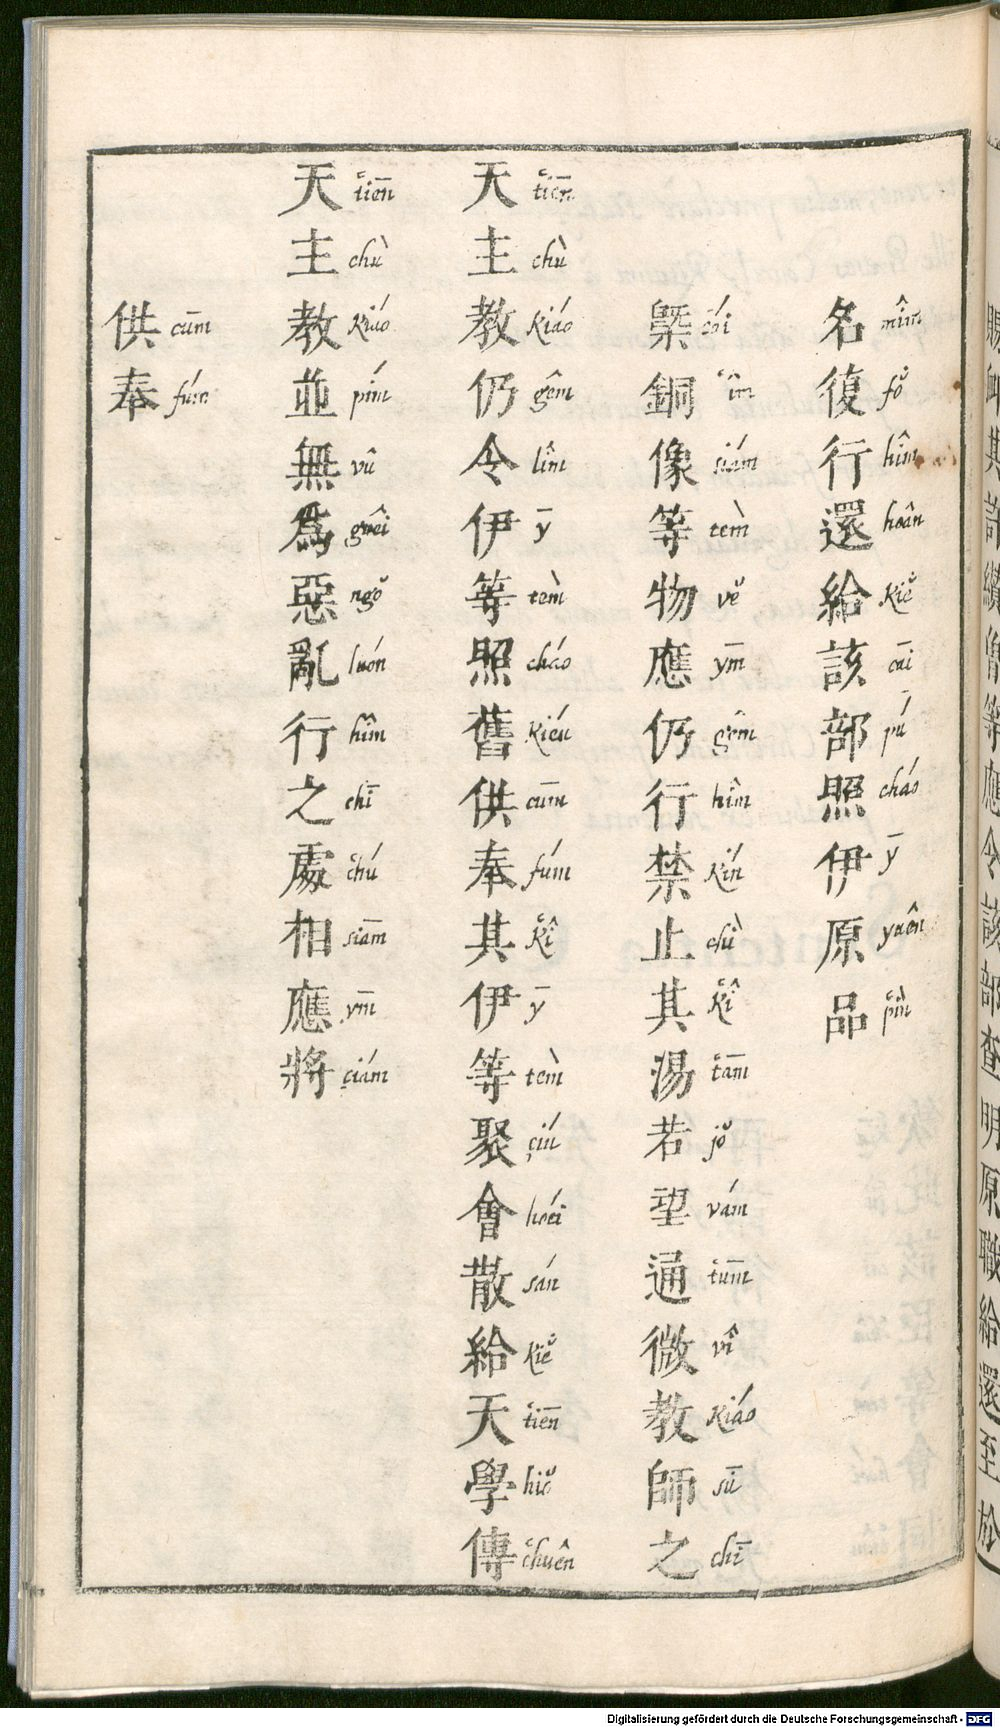 賜卹其許纘曾等應令該部查明原職給還至於
名復行還給該部照伊原品
mîm fŏ hîm hoân kiĕ cāi pú cháo ȳ yuên ʿpìn
槩銅像等物應仍行禁止其湯若望通微教師之
siám tèm vĕ ȳm gêm hîm kín chì ʿkî ʿtām jŏ vám ʿtūm vî kiáo sū chī
天主教仍令伊等照舊供奉其伊等聚會散給天學傳
ʿtiēn chù kiáo gêm lîm ȳ tèm cháo kiéu cūm fúm ʿkî ȳ tèm çiú hoéi sán kiĕ ʿtiēn hiŏ ʿchuên
天主教並無爲惡亂行之處相應將
ʿtiēn chù kiáo pím vû goêi ngŏ luón hîm chī ʿchú siām ȳm çiám
供奉
cūm fúm
Digitalisierung gefördert durch die Deutsche Forschungsgemeinschaft - DFG